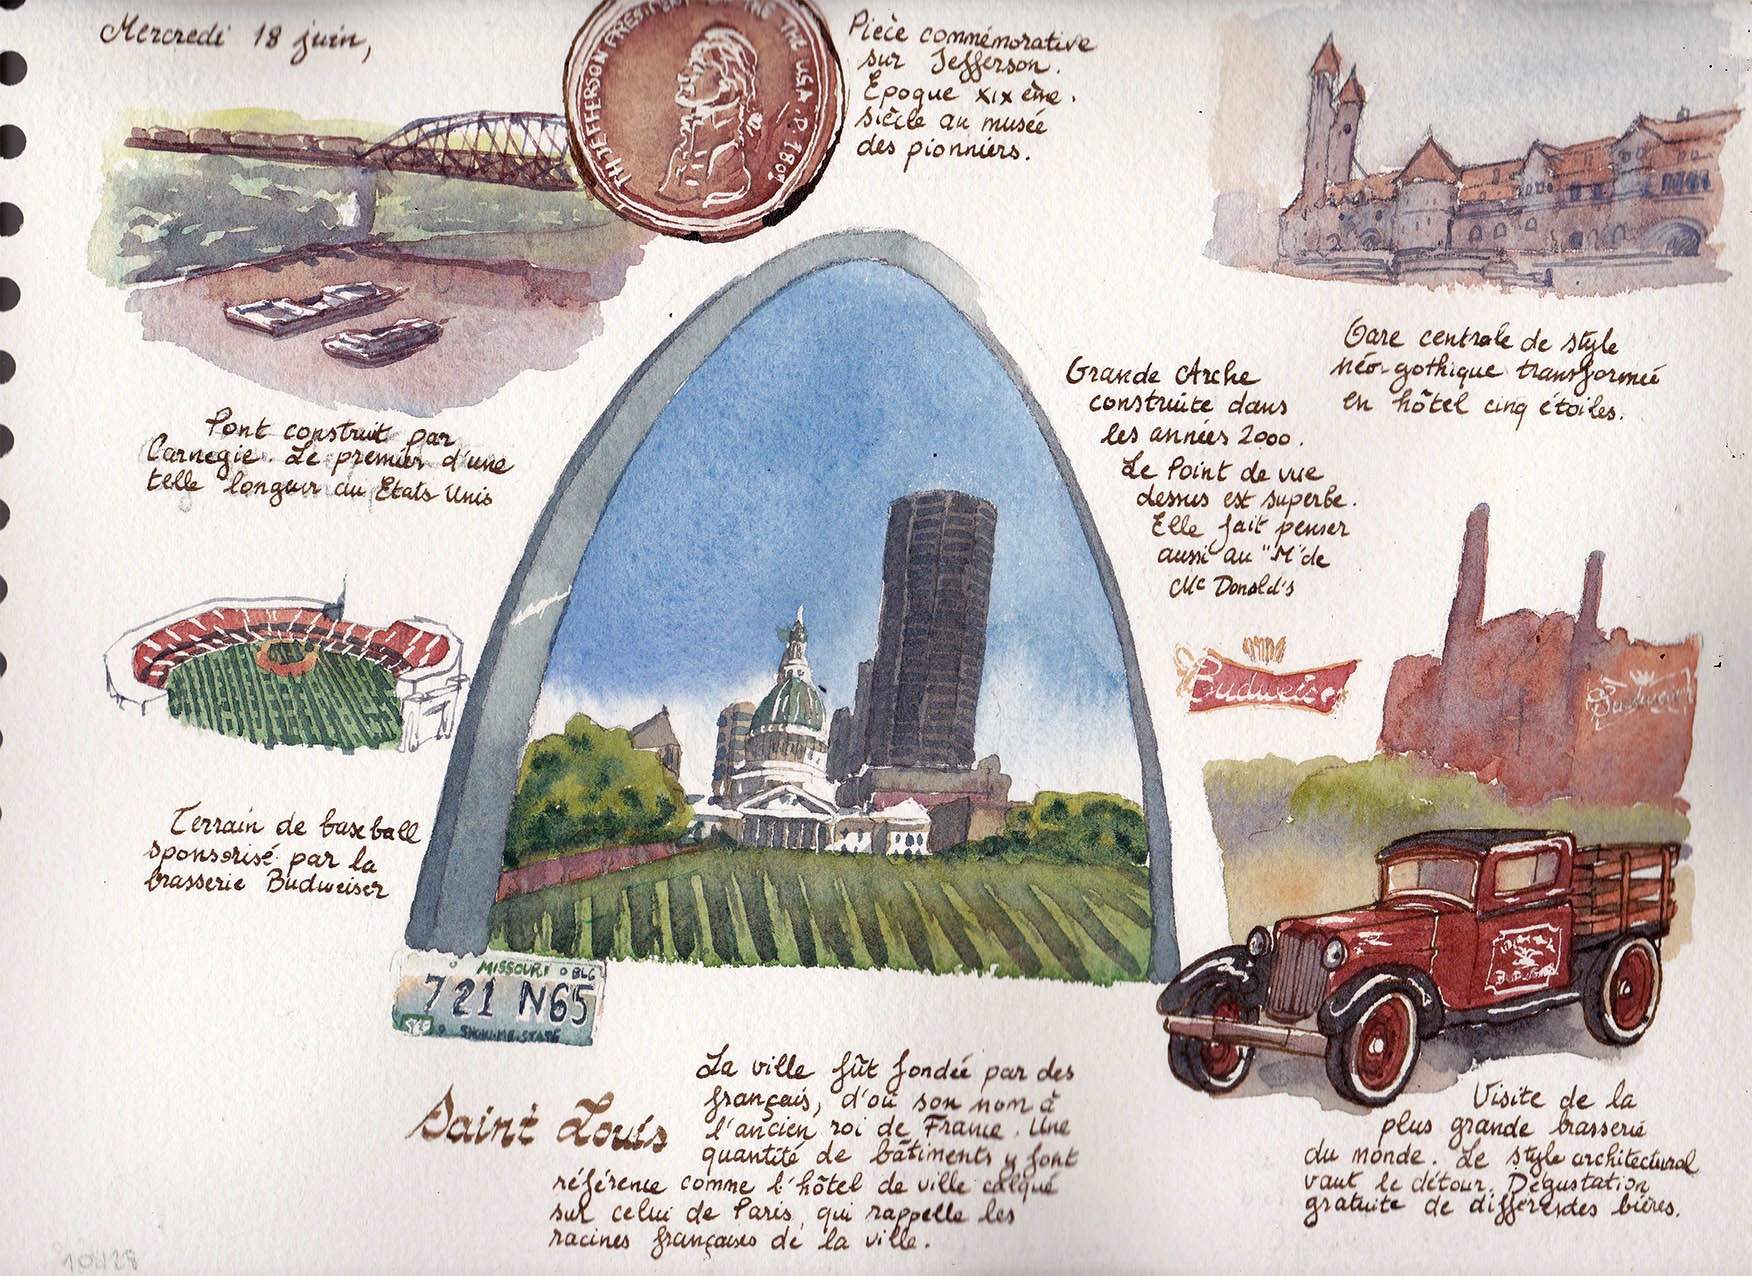 Mercredi 18 juin,
TH JEFFERSON PRESIDENT OF THE U.S.A.
Pièce commémorative
sur Jefferson.
Epoque XIX ème.
siècle au musée
des pionniers.
Gare centrale de style
néo-gothique transformée
en hôtel cinq étoiles.
Pont construit par
Carnegie. Le premier d'une
telle longueur au Etats Unis
Grande Arche
construite dans
les années 2000.
Le Point de vue
dessus est superbe.
Elle fait penser
aussi au "M" de
Mc Donald's
Budweiser
Budweiser
Terrain de baseball
sponsorisé par la
brasserie Budweiser
MISSOURI
721 N65
SHOW-ME STATE
Saint Louis
La ville fût fondée par des
français, d'où son nom à
l'ancien roi de France. Une
quantité de bâtiments y font
référence comme l'hôtel de ville calqué
sur celui de Paris, qui rappelle les
racines françaises de la ville.
Visite de la
plus grande brasserie
du monde. Le style architectural
vaut le détour. Dégustation
gratuite de différentes bières.